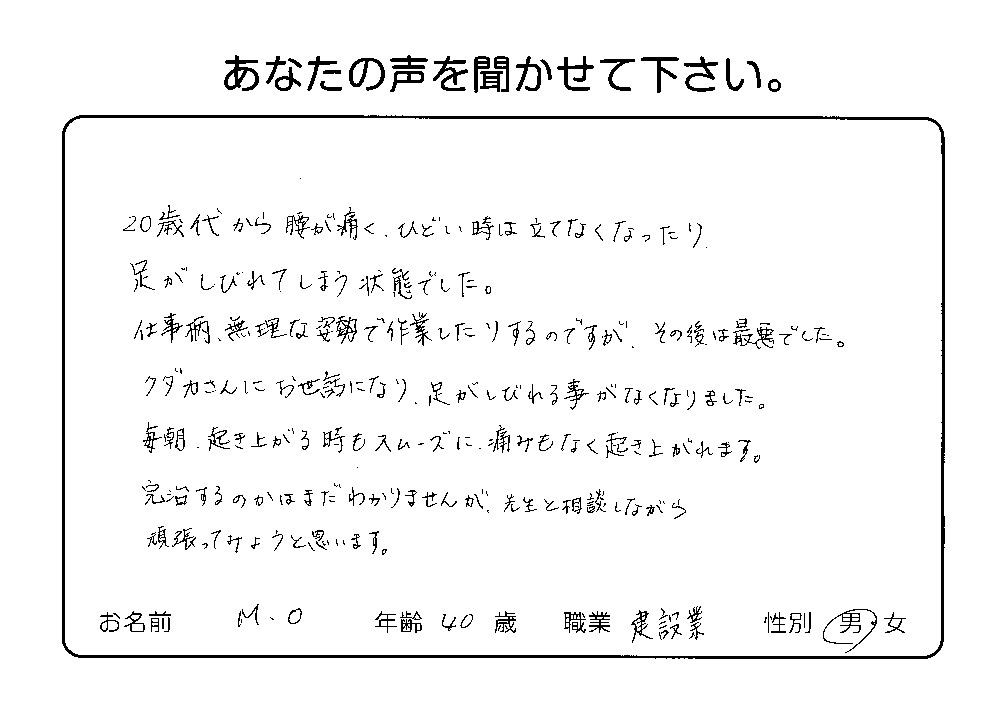 あなたの声を聞かせて下さい。
20歳代から腰が痛く、ひどい時は立てなくなったり、
足がしびれてしまう状態でした。
仕事柄、無理な姿勢で作業したりするのですが、その後は最悪でした。
クダカさんにお世話になり、足がしびれる事がなくなりました。
毎朝、起き上がる時もスムーズに、痛みもなく起き上がれます。
完治するのかはまだわかりませんが、先生と相談しながら
頑張ってみようと思います。
お名前 M.O 年齢 40 歳 職業 建設業 性別 男・女